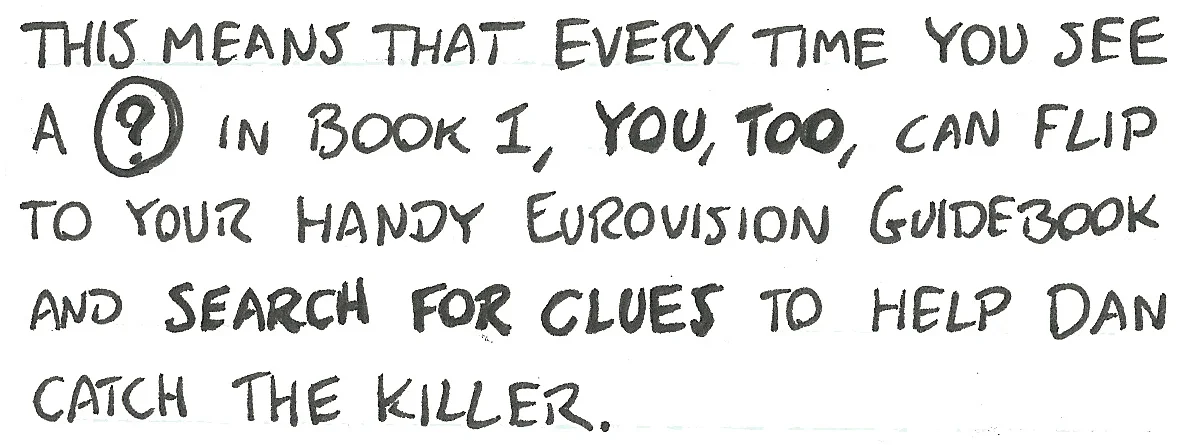 THIS MEANS THAT EVERY TIME YOU SEE
A ? IN BOOK 1, YOU, TOO, CAN FLIP
TO YOUR HANDY EUROVISION GUIDEBOOK
AND SEARCH FOR CLUES TO HELP DAN
CATCH THE KILLER.